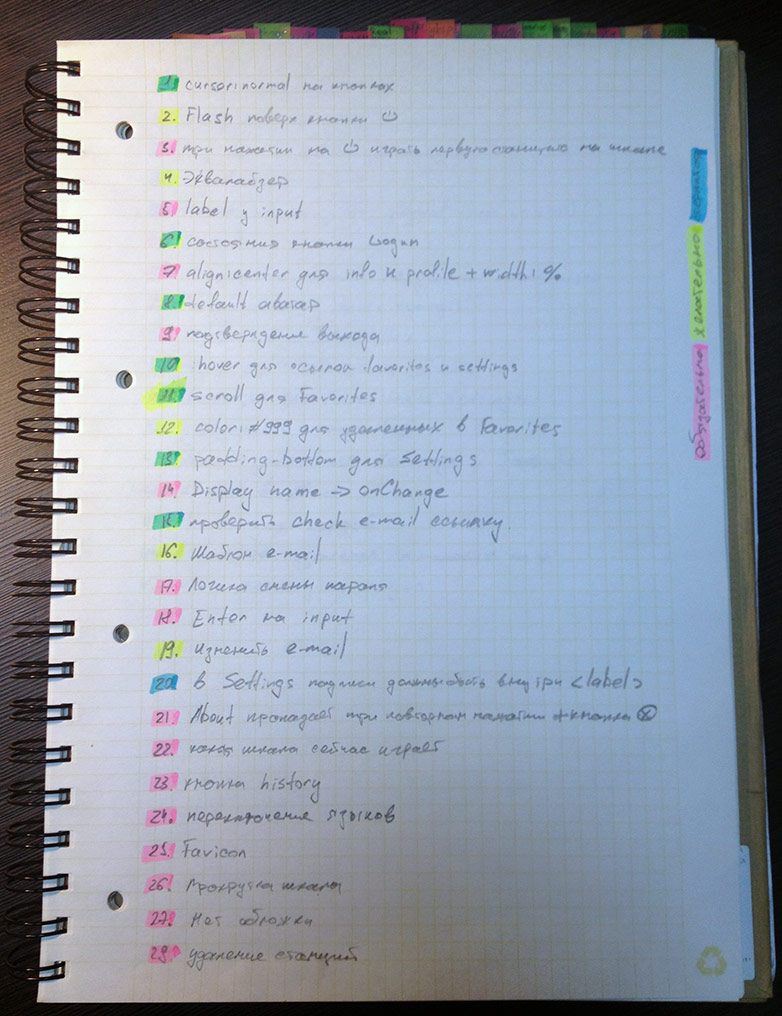 1. cursor:normal на кнопках
2. Flash поверх кнопки ⏻
3. при нажатии на ⏻ играть первую станцию на шкале
4. Эквалайзер
5. label у input
6. состояния кнопки Login
7. align:center для info и profile + width: %
8. default аватар
9. подтверждение выхода
10. :hover для ссылок favorites и settings
11. scroll для Favorites
12. color:#999 для удаленных в Favorites
13. padding-bottom для Settings
14. Display name → onChange
15. проверить check e-mail ссылку.
16. Шаблон e-mail
17. Логика смены пароля
18. Enter на input
19. Изменить e-mail
20. в Settings подписи должны быть внутри <label>
21. About пропадает при повторном нажатии + кнопка ⓧ
22. какая шкала сейчас играет
23. кнопка history
24. переключение языков
25. Favicon
26. Прокрутка шкалы
27. Нет обложки
28. удаление станций
Обязательно желательно